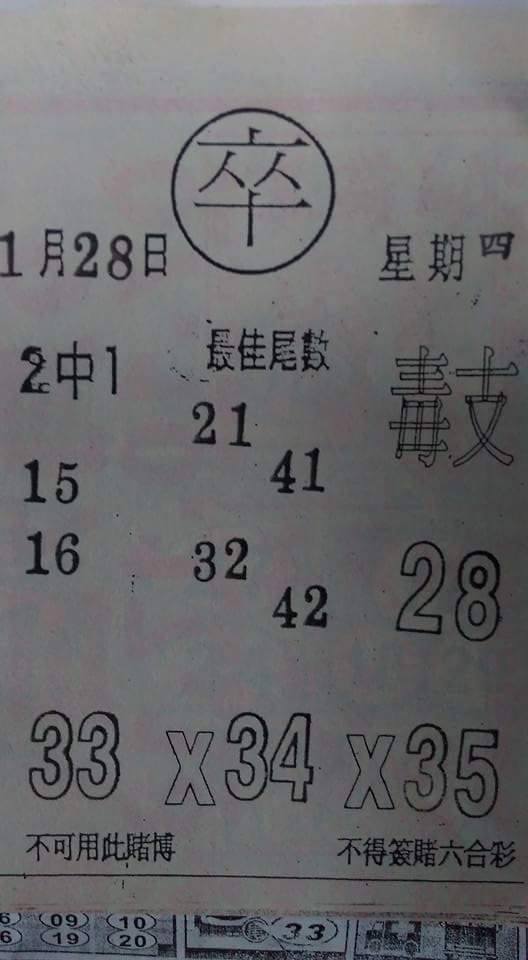 卒
1月28日
星期四
2中1
最佳尾數
21
41
15
16
32
42
28
33 X 34 X 35
不可用此賭博
不得簽賭六合彩
09 10
19 20
33